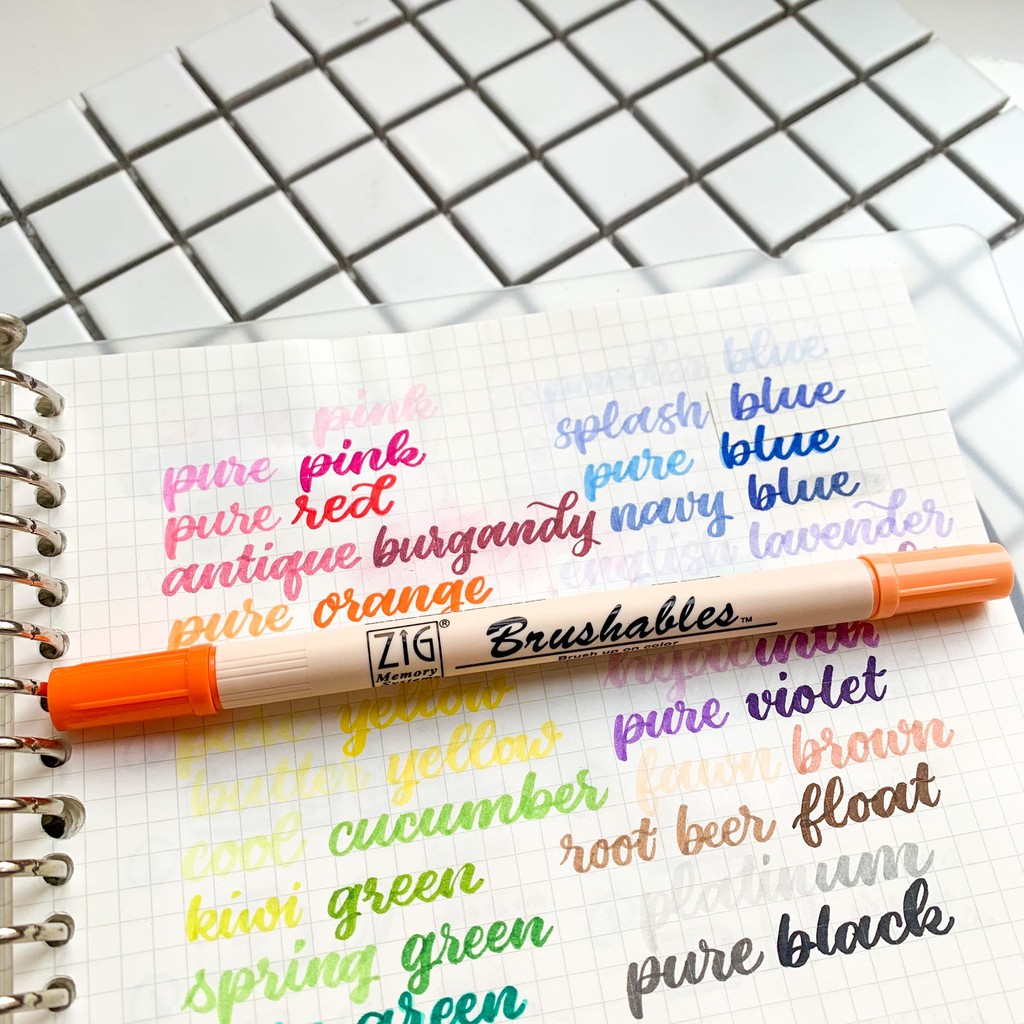 pink
pure pink
pure red
antique burgandy
pure orange
ZIG®
Memory
System
Brushables™
Brush up on color
yellow
butter yellow
cool cucumber
kiwi green
spring green
green
powder blue
splash blue
pure blue
navy blue
english lavender
hyacinth
pure violet
fawn brown
root beer float
platinum
pure black